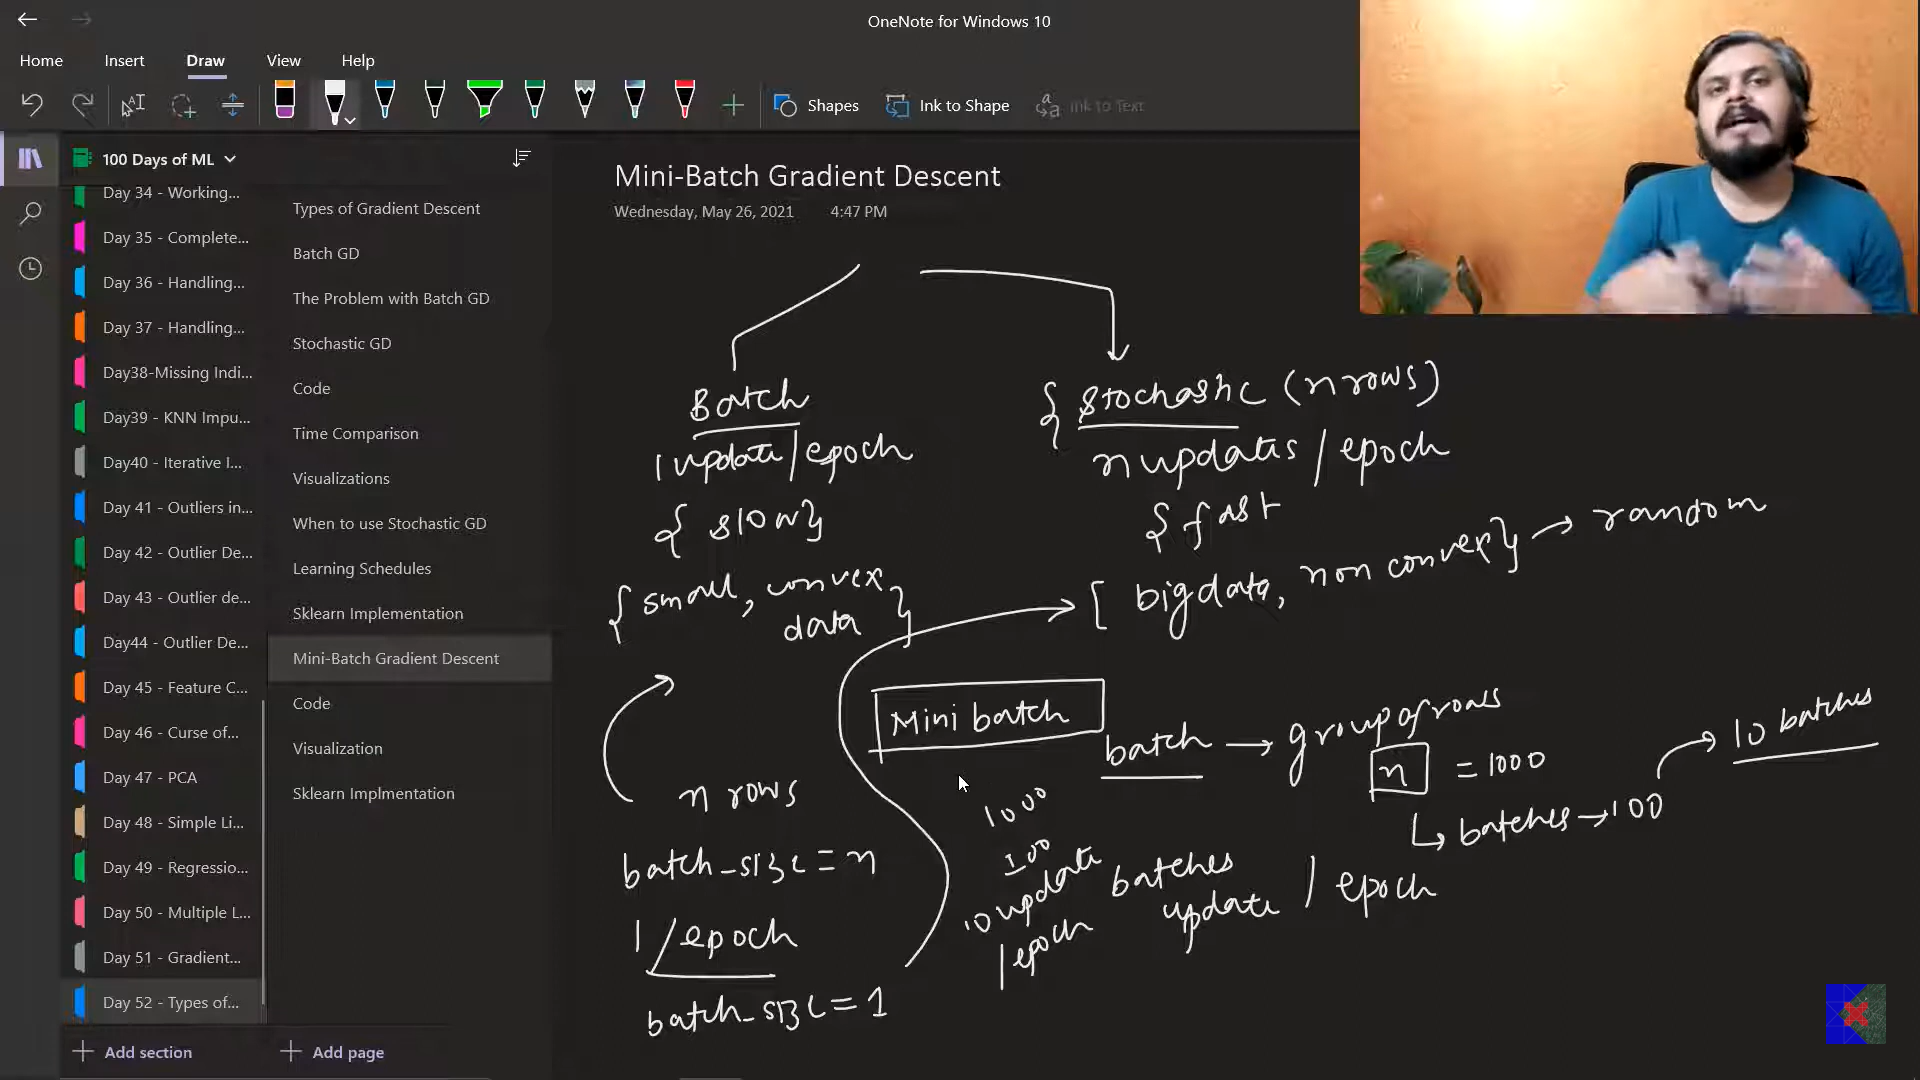 OneNote for Windows 10
Home Insert Draw View Help
Shapes Ink to Shape Ink to Text
100 Days of ML
Day 34 - Working...
Day 35 - Complete...
Day 36 - Handling...
Day 37 - Handling...
Day38-Missing Indi...
Day39 - KNN Impu...
Day40 - Iterative I...
Day 41 - Outliers in...
Day 42 - Outlier De...
Day 43 - Outlier de...
Day44 - Outlier De...
Day 45 - Feature C...
Day 46 - Curse of...
Day 47 - PCA
Day 48 - Simple Li...
Day 49 - Regressio...
Day 50 - Multiple L...
Day 51 - Gradient...
Day 52 - Types of...
Add section
Types of Gradient Descent
Batch GD
The Problem with Batch GD
Stochastic GD
Code
Time Comparison
Visualizations
When to use Stochastic GD
Learning Schedules
Sklearn Implementation
Mini-Batch Gradient Descent
Code
Visualization
Sklearn Implmentation
Add page
Mini-Batch Gradient Descent
Wednesday, May 26, 2021 4:47 PM
Batch
1 update/epoch
{ slow}
{small, convex
data }
{ Stochastic (n rows)
n updates / epoch
{ fast
[ big data, non convex} → random
Mini batch
batch → group of rows
n = 1000
↳ batches → 100 → 10 batches
n rows
batch_size = n
1 / epoch
batch_size = 1
1000
100
10 update
/ epoch
batches
update / epoch